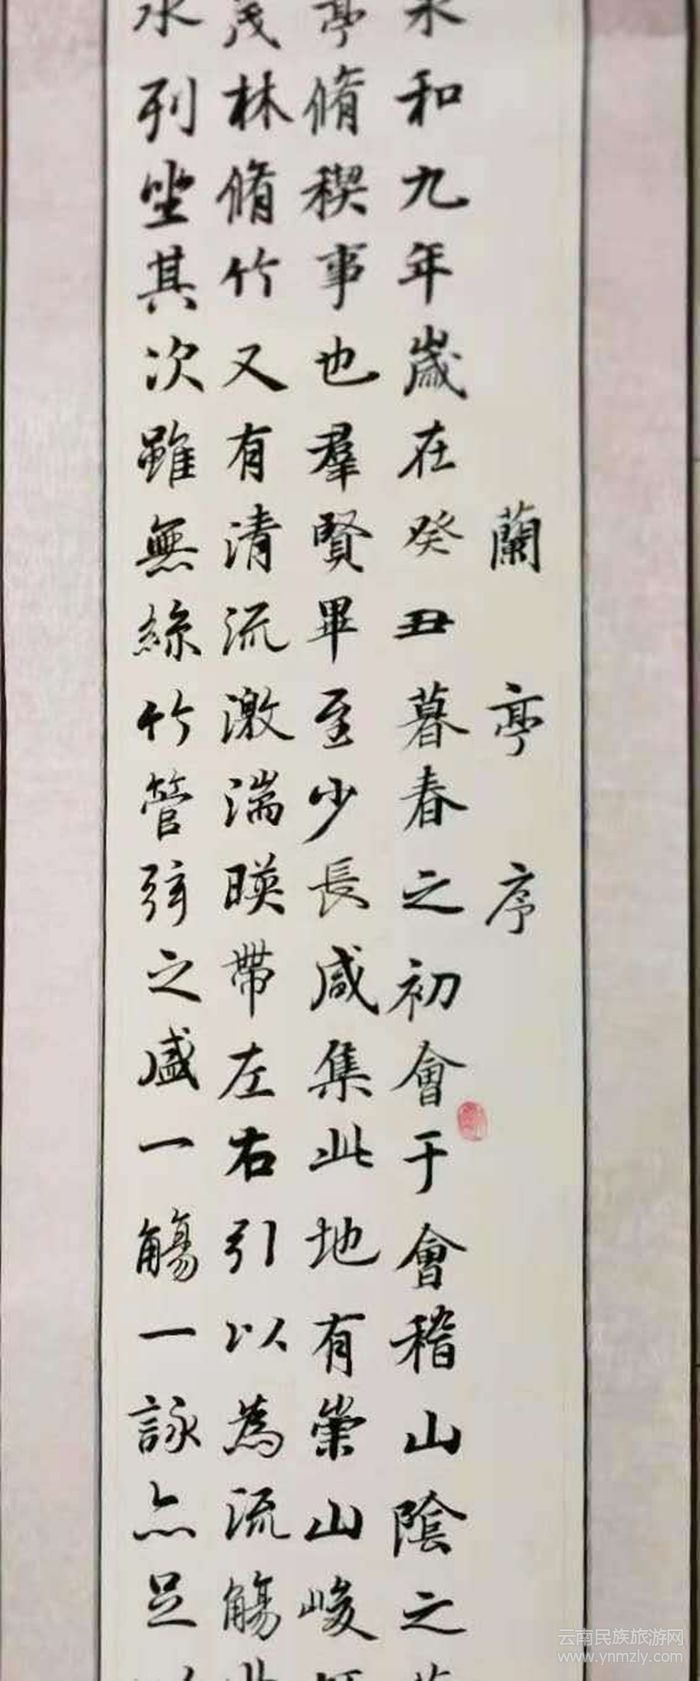 蘭亭序
永和九年歲在癸丑暮春之初會于會稽山陰之
亭脩稧事也羣賢畢至少長咸集此地有崇山峻
茂林脩竹又有清流激湍暎帶左右引以為流觴
水列坐其次雖無絲竹管弦之盛一觴一詠亦足
云南民族旅游网
www.ynmzly.com